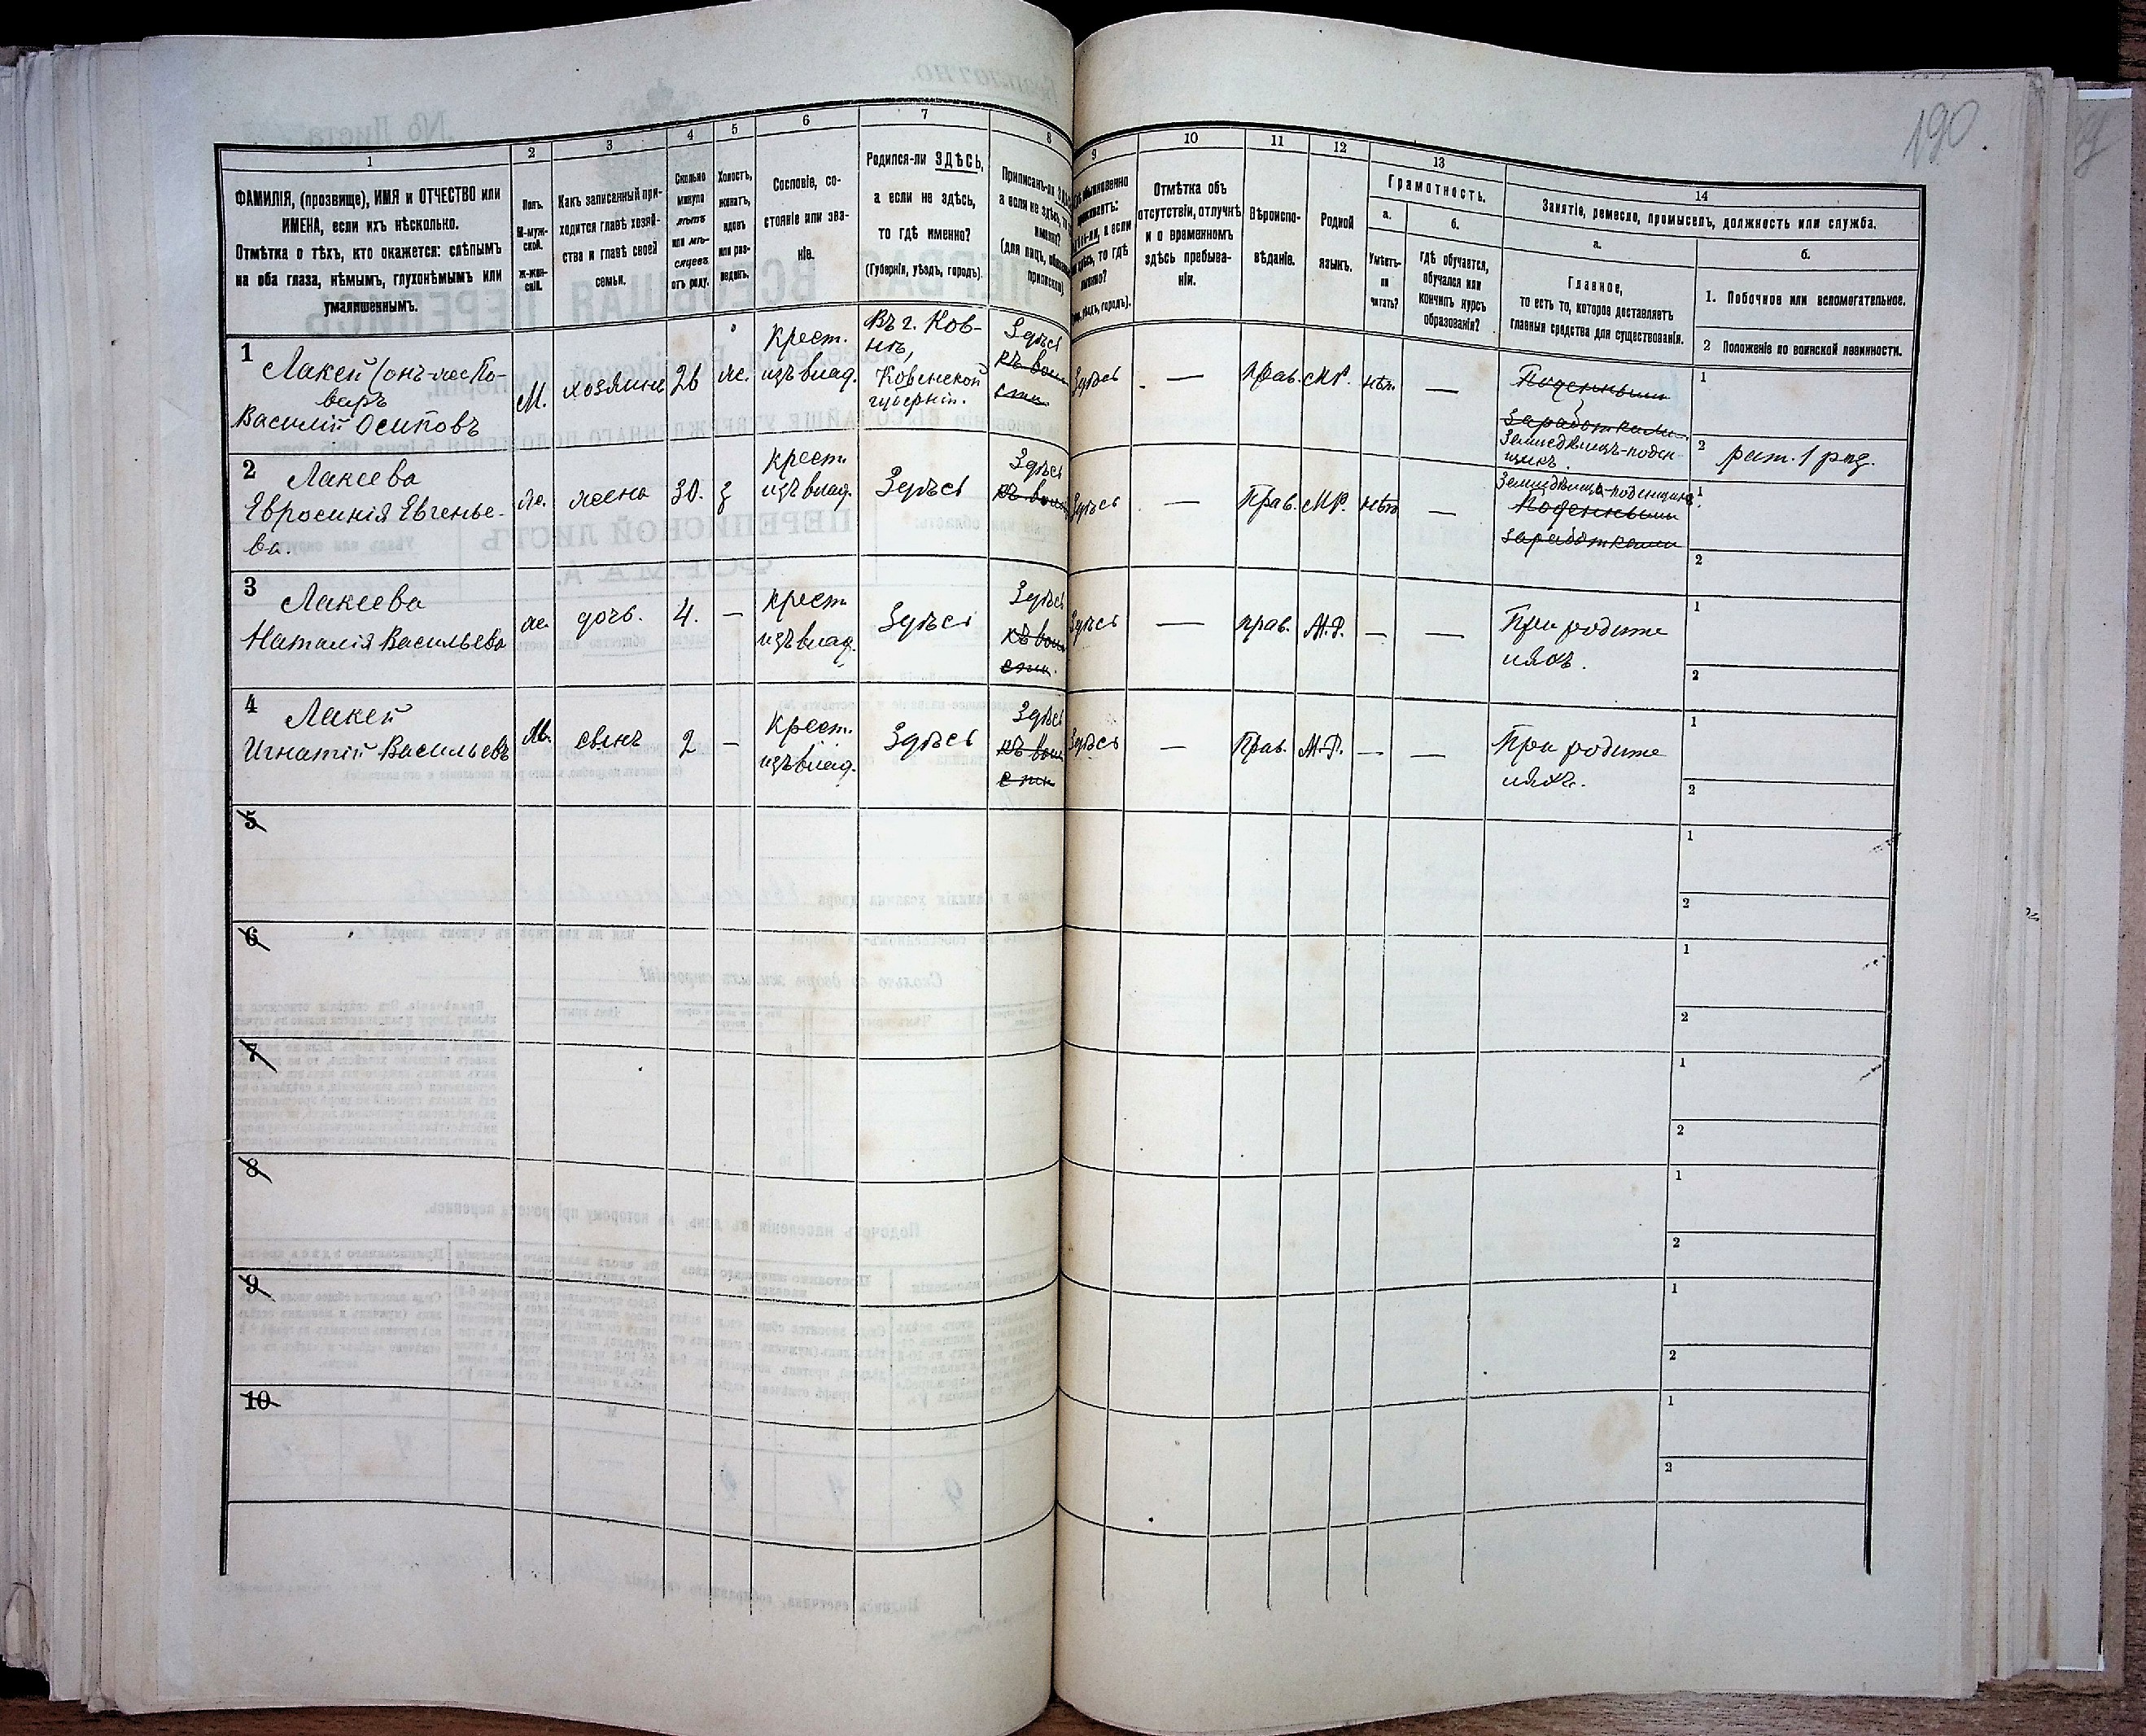 190.
1
ФАМИЛІЯ, (прозвище), ИМЯ и ОТЧЕСТВО или
ИМЕНА, если ихъ нѣсколько.
Отмѣтка о тѣхъ, кто окажется: слѣпымъ
на оба глаза, нѣмымъ, глухонѣмымъ или
умалишеннымъ.
2
Полъ.
М-муж-
ской.
Ж-жен-
скій.
3
Какъ записанный при-
ходится главѣ хозяй-
ства и главѣ своей
семьи.
4
Сколько
минуло
лѣтъ
или мѣ-
сяцевъ
отъ роду.
5
Холостъ,
женатъ,
вдовъ
или раз-
веденъ.
6
Сословіе, со-
стояніе или зва-
ніе.
7
Родился-ли ЗДѢСЬ,
а если не здѣсь,
то гдѣ именно?
(Губернія, уѣздъ, городъ).
8
Приписанъ-ли
а если не здѣсь, то
именно?
(для лицъ,
приписаны)
9
обыкновенно
а если
здѣсь, то гдѣ
именно?
уѣздъ, городъ).
10
Отмѣтка объ
отсутствіи, отлучкѣ
и о временномъ
здѣсь пребыва-
ніи.
11
Вѣроиспо-
вѣданіе.
12
Родной
языкъ.
13
Грамотность.
а.
Умѣетъ-
ли
читать?
б.
гдѣ обучается,
обучался или
кончилъ курсъ
образованія?
14
Занятіе, ремесло, промыселъ, должность или служба.
а.
Главное,
то есть то, которое доставляетъ
главныя средства для существованія.
б.
1. Побочное или вспомогательное.
2 Положеніе по воинской повинности.
1
Лакей (онъ-же По-
варъ
Василій Осиповъ
М.
хозяинъ
26
ж.
Крест.
изъ влад.
Въ г. Ков-
нѣ,
Ковенской
губерніи.
Здѣсь
Здѣсь
—
Прав.
М.Р.
нѣт.
—
Поденными
Заработками.
Земледѣлецъ-поден-
щикъ.
1
2 рат. 1 раз.
2
Лакеева
Евросинія Евгенье-
ва.
ж.
жена
30.
з
крест.
изъ влад.
Здѣсь
Здѣсь
Здѣсь
—
Прав.
М.Р.
нѣт
—
Поденными
заработками
1
2
3
Лакеева
Наталія Васильева
ж.
дочь.
4.
—
крест.
изъ влад.
Здѣсь
Здѣсь
Здѣсь
—
прав.
М.Р.
—
—
При родите
ляхъ.
1
2
4
Лакей
Игнатій Васильевъ
М.
сынъ
2
—
Крест.
изъ влад.
Здѣсь
Здѣсь
Здѣсь
—
Прав.
М.Р.
—
—
При родите
ляхъ.
1
2
5
1
2
6
1
2
7
1
2
8
1
2
9
1
2
10
1
2